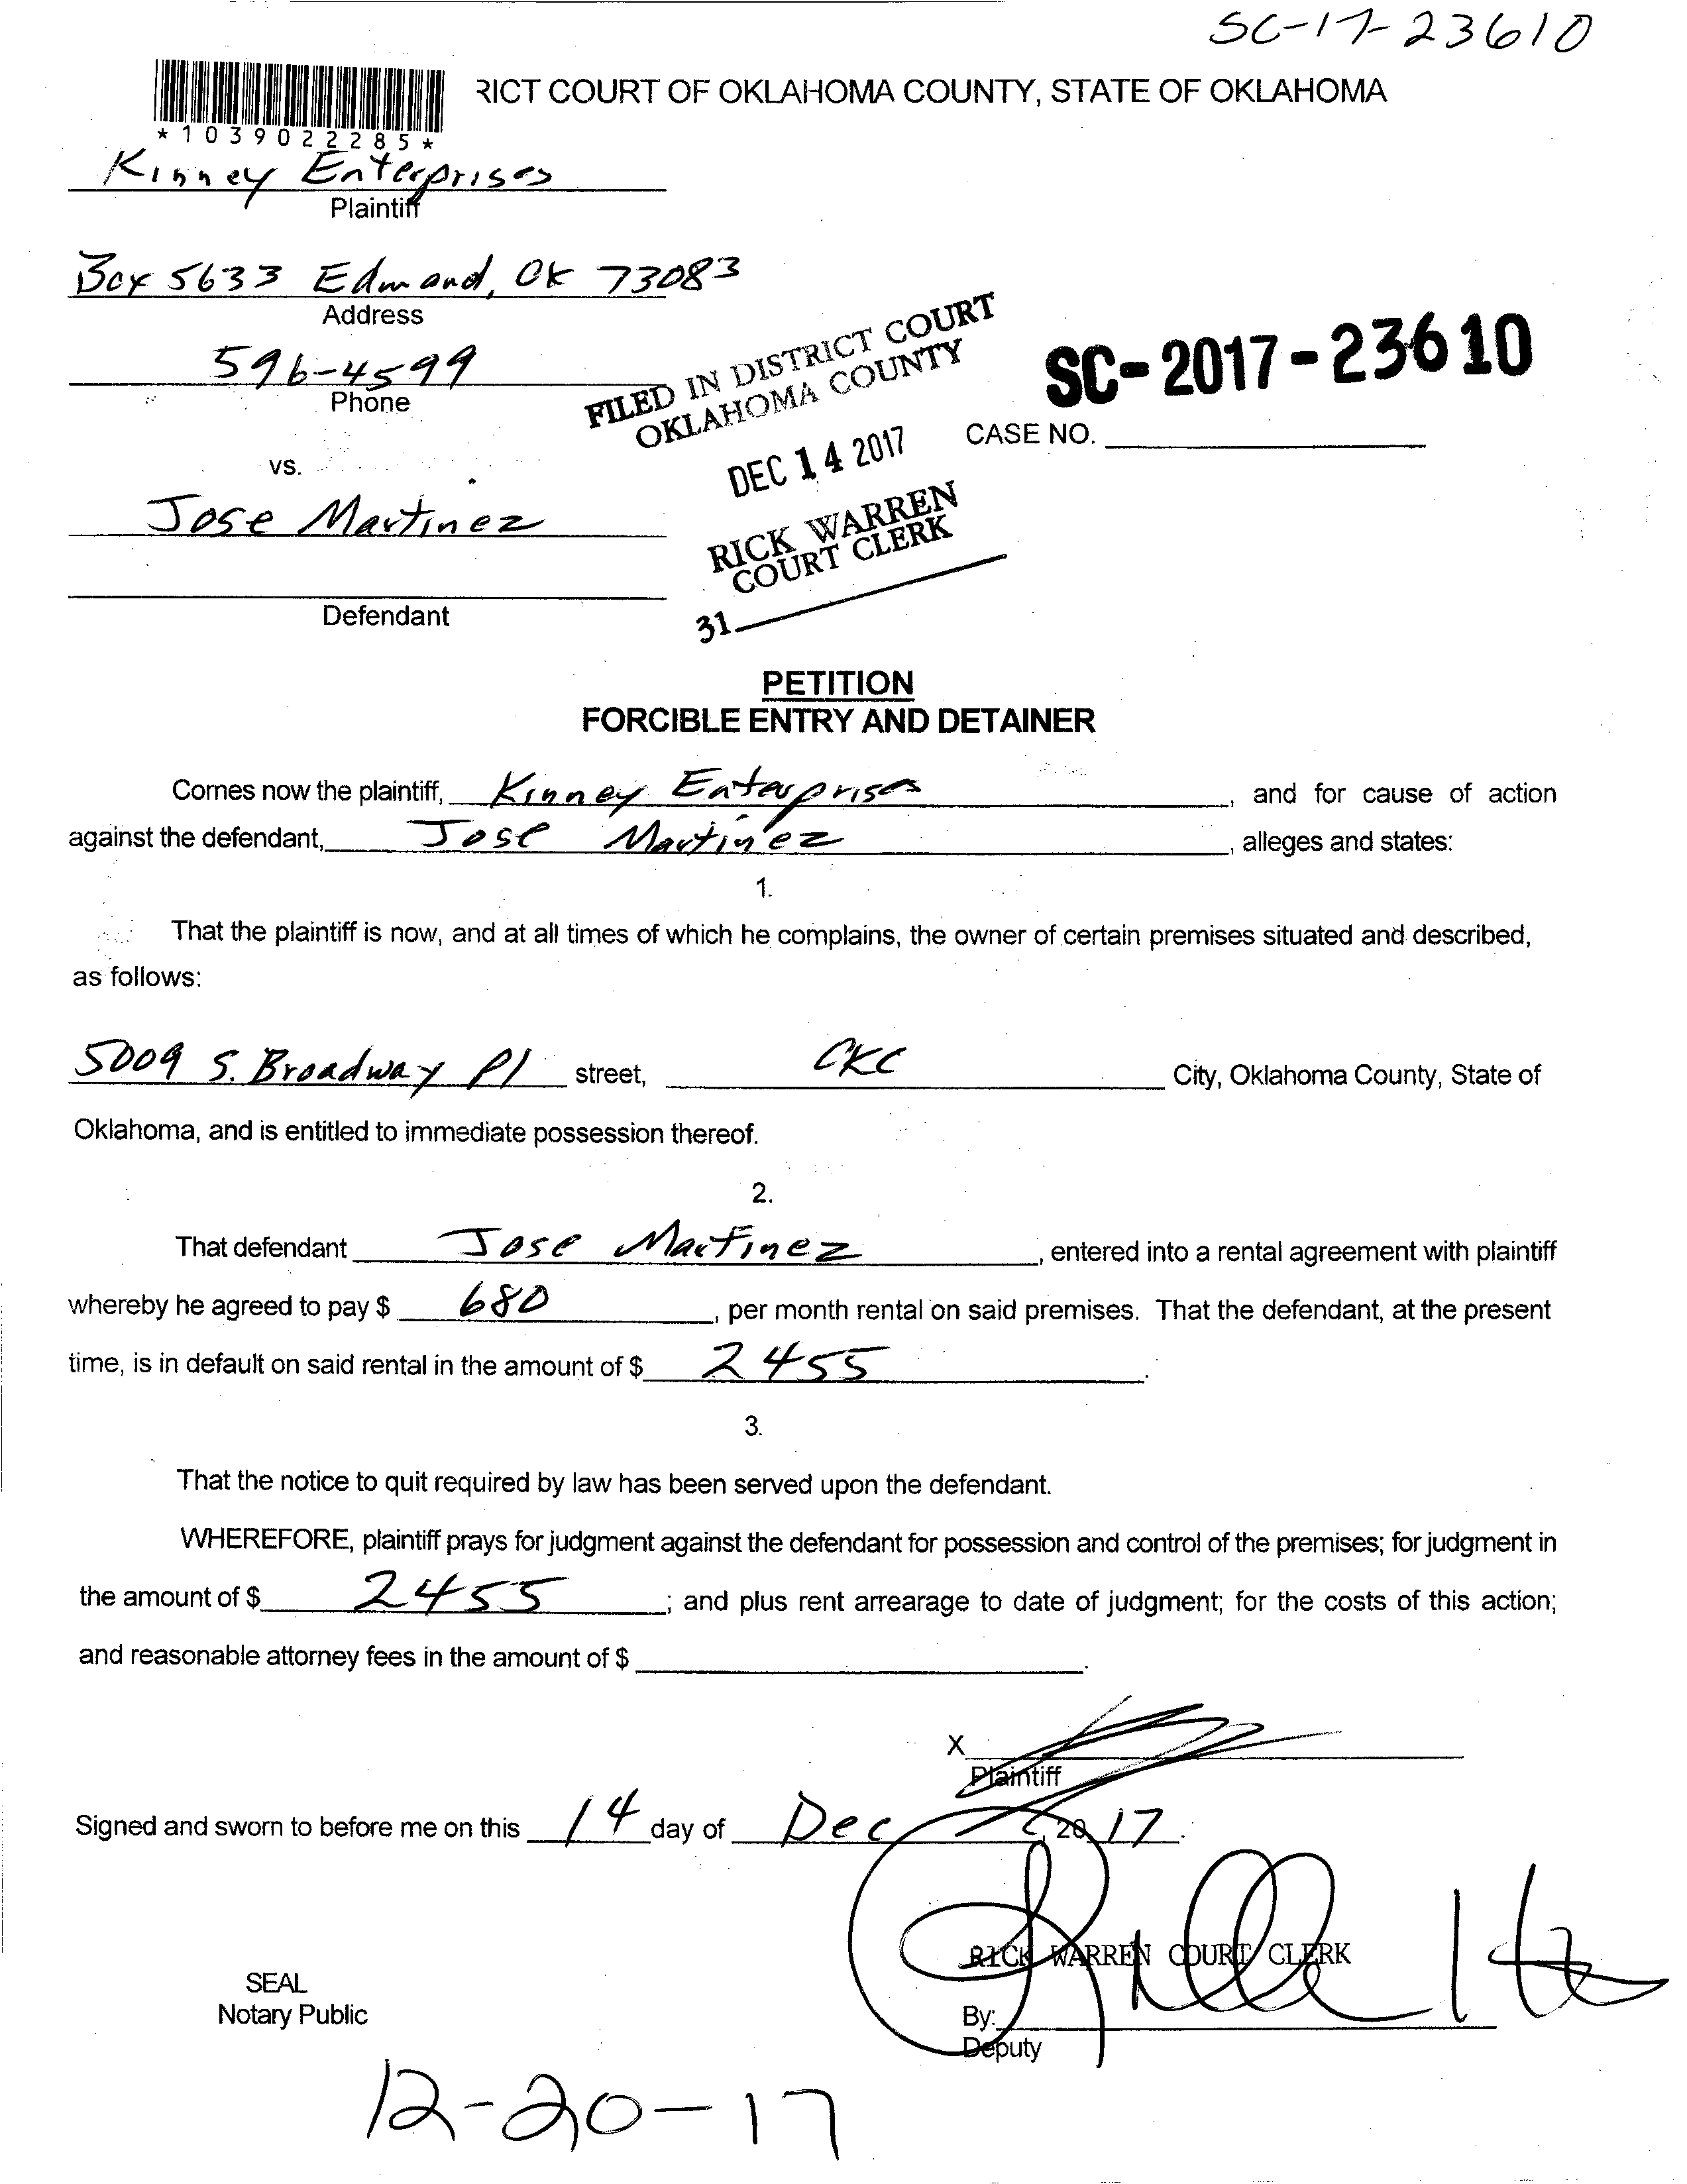 SC-17-23610
RICT COURT OF OKLAHOMA COUNTY, STATE OF OKLAHOMA
*1039022285*
Kinney Enterprises
Plaintiff
Box 5633 Edmond, OK 73083
Address
596-4599
Phone
FILED IN DISTRICT COURT
OKLAHOMA COUNTY
SC-2017-23610
CASE NO.
DEC 14 2017
vs.
RICK WARREN
COURT CLERK
Jose Martinez
31
Defendant
PETITION
FORCIBLE ENTRY AND DETAINER
Comes now the plaintiff, Kinney Enterprises, and for cause of action
against the defendant, Jose Martinez, alleges and states:
1.
That the plaintiff is now, and at all times of which he complains, the owner of certain premises situated and described,
as follows:
5009 S. Broadway Pl street, OKC City, Oklahoma County, State of
Oklahoma, and is entitled to immediate possession thereof.
2.
That defendant Jose Martinez, entered into a rental agreement with plaintiff
whereby he agreed to pay $ 680, per month rental on said premises. That the defendant, at the present
time, is in default on said rental in the amount of $ 2455.
3.
That the notice to quit required by law has been served upon the defendant.
WHEREFORE, plaintiff prays for judgment against the defendant for possession and control of the premises; for judgment in
the amount of $ 2455; and plus rent arrearage to date of judgment; for the costs of this action;
and reasonable attorney fees in the amount of $.
X
Plaintiff
Signed and sworn to before me on this 14 day of Dec, 2017.
RICK WARREN COURT CLERK
SEAL
Notary Public
By:
Deputy
12-20-17